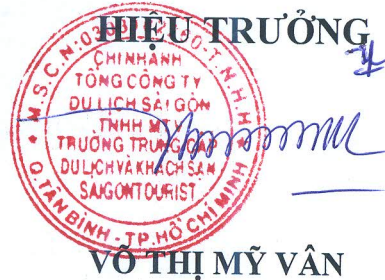 HIỆU TRƯỞNG
CHI NHÁNH
TỔNG CÔNG TY
DU LỊCH SÀI GÒN
TNHH MTV
TRƯỜNG TRUNG CẤP
DU LỊCH VÀ KHÁCH SẠN
SAIGONTOURIST
Q.TÂN BÌNH - TP.HỒ CHÍ MINH
VÕ THỊ MỸ VÂN